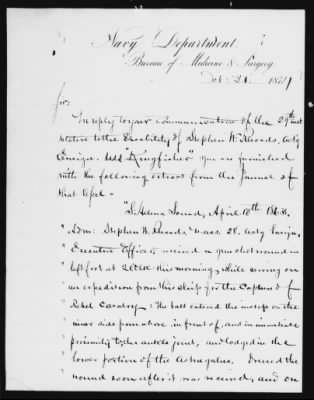 Navy Department
Bureau of Medicine & Surgery
Oct. 31. 1871
Sir:
In reply to your communication of the 29th inst
relative to the Disability of Stephen W. Rhoads, actg
Ensign. USS "Kingfisher" you are furnished
with the following extract from the Journal of
that vessel -
"St Helena Sound, April 10th 1863.
" Adm: Stephen W. Rhoads: Mass. 28. Actg Ensign,
" Executive Officer, received a gun shot wound in
" left foot at 2 o'clk this morning, while serving on
" an expedition from this ship for the capture of
" Rebel Cavalry: The ball entered the instep on the
" inner side from above, in front of, and in immediate
" proximity to the ankle joint, and lodged in the
" lower portion of the astragalus. Dressed the
" wound soon after it was received, and on